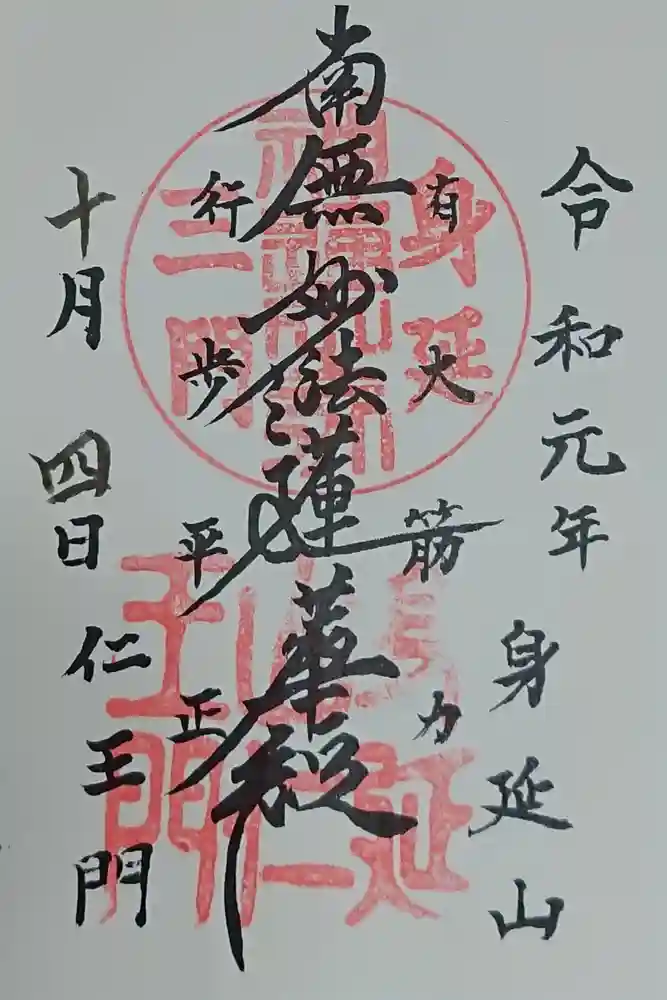 令和元年
身延山
有大筋力
南無妙法蓮華経
行歩平正
十月四日
仁王門
身延
三門
身延山
仁王門